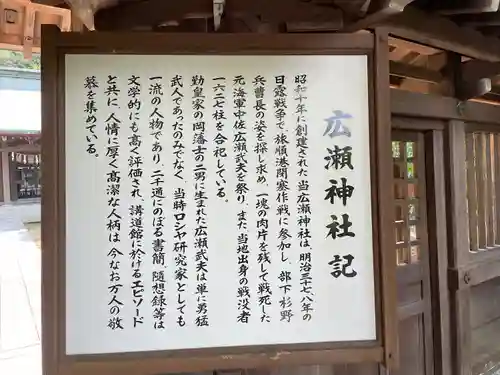 広瀬神社記
昭和十年に創建された当広瀬神社は、明治三十七八年の
日露戦争で、旅順港閉塞作戦に参加し、部下杉野
兵曹長の姿を探し求め、一塊の肉片を残して戦死した
元海軍中佐広瀬武夫を祭り、また、当地出身の戦没者
一六二七柱を合祀している。
勤皇家の岡藩士の二男に生まれた広瀬武夫は単に勇猛
武人であったのみでなく、当時ロシヤ研究家としても
一流の人物であり、二千通にのぼる書簡、随想録等は
文学的にも高く評価され、講道館に於けるエピソード
と共に、人情に厚く高潔な人柄は今なお万人の敬
慕を集めている。